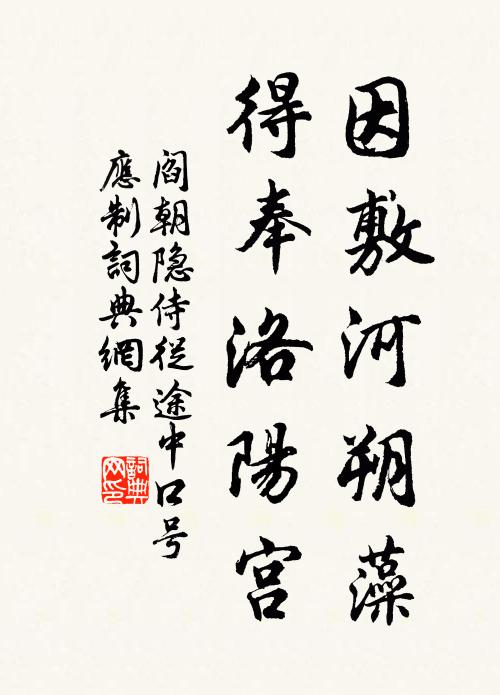 因敷河朔藻
得奉洛陽宮
阎朝隐侍從途中口号
應制詞典網集
詞典网印